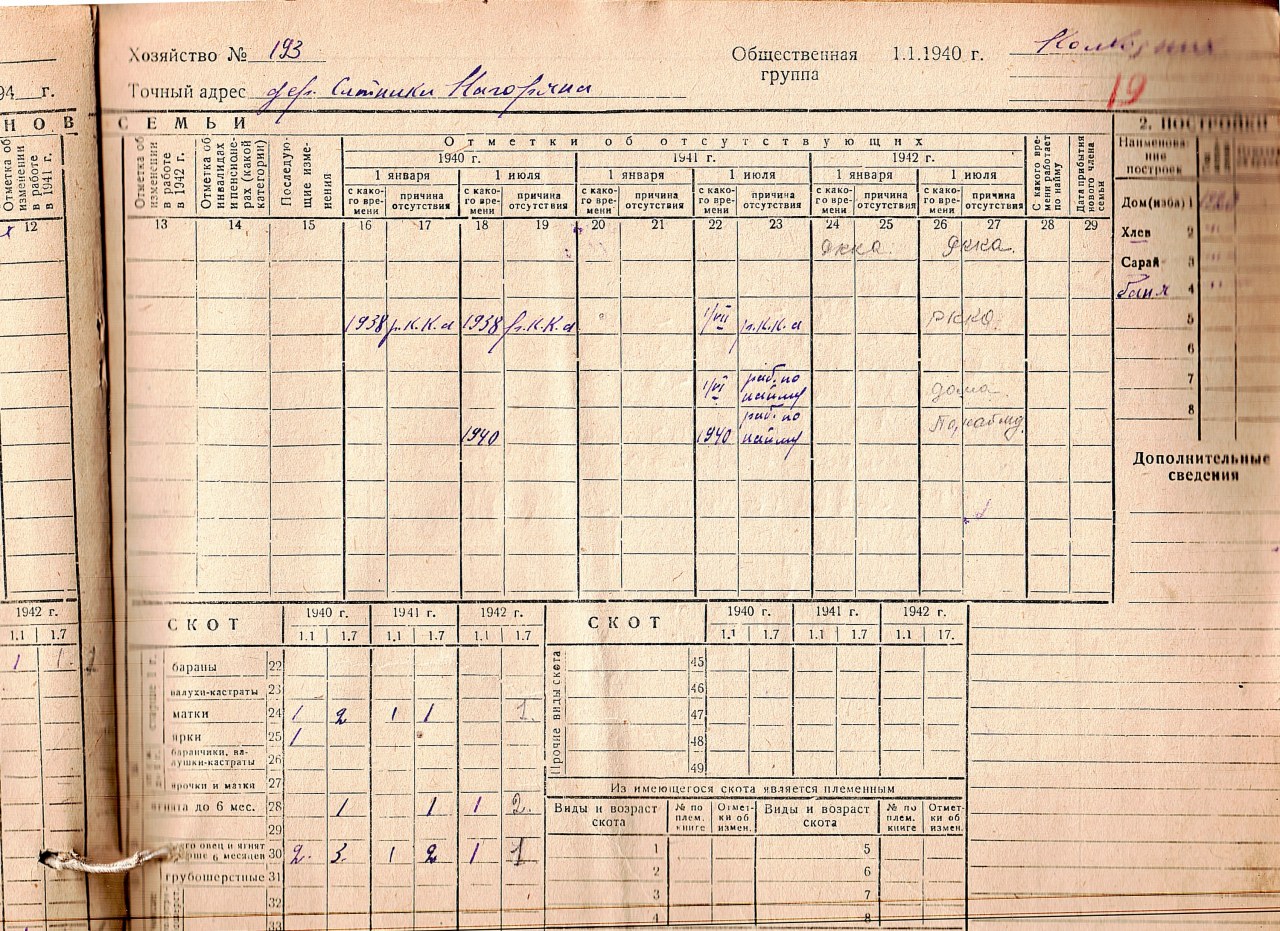 Хозяйство № 193
Общественная группа 1.1.1940 г.
Точный адрес дер.
19
94 г.
НОВ СЕМЬИ
2. ПОСТРОЙКИ
Отметка об изменении в работе в 1941 г.
Отметка об изменении в работе в 1942 г.
Отметка об инвалидах и пенсионерах (какой категории)
Последующие изменения
Отметки об отсутствующих
1940 г. 1941 г. 1942 г.
1 января 1 июля 1 января 1 июля 1 января 1 июля
с какого времени причина отсутствия с какого времени причина отсутствия с какого времени причина отсутствия с какого времени причина отсутствия с какого времени причина отсутствия с какого времени причина отсутствия
С какого времени работает по найму
Дата прибытия нового члена семьи
Наименование построек
12 13 14 15 16 17 18 19 20 21 22 23 24 25 26 27 28 29
Дом (изба) 1
Хлев 2
Сарай 3
баня 4
5
6
7
8
ркка ркка.
1938 р.К.К.а 1938 р.К.К.а 1/VII р.К.К.а ркка.
1/VI раб. по найму дома
1940 1940 раб. по найму
Дополнительные сведения
1942 г.
1.1 1.7
1 1.
СКОТ 1940 г. 1941 г. 1942 г.
1.1 1.7 1.1 1.7 1.1 1.7
бараны 22
валухи-кастраты 23
матки 24 1 2 1 1 1.
ярки 25 1
баранчики, валушки-кастраты 26
ярочки и матки 27
ягнята до 6 мес. 28 1 1 1 2.
29
овец и ягнят старше 6 месяцев 30 2. 3. 1 2 1 1
грубошерстные 31
32
33
СКОТ 1940 г. 1941 г. 1942 г.
1.1 1.7 1.1 1.7 1.1 17.
Прочие виды скота
45
46
47
48
49
Из имеющегося скота является племенным
Виды и возраст скота № по плем. книге Отметки об измен. Виды и возраст скота № по плем. книге Отметки об измен.
1 5
2 6
3 7
4 8